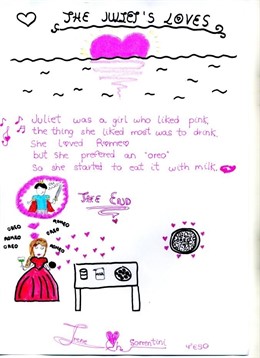 THE JULIET'S LOVES
Juliet was a girl who liked pink,
the thing she liked most was to drink.
She loved Romeo
but she prefered an "oreo"
So she started to eat it with milk.
THE END
OREO ROMEO
ROMEO OREO
OREO ROMEO
Irene Sorrentini 4ºESO